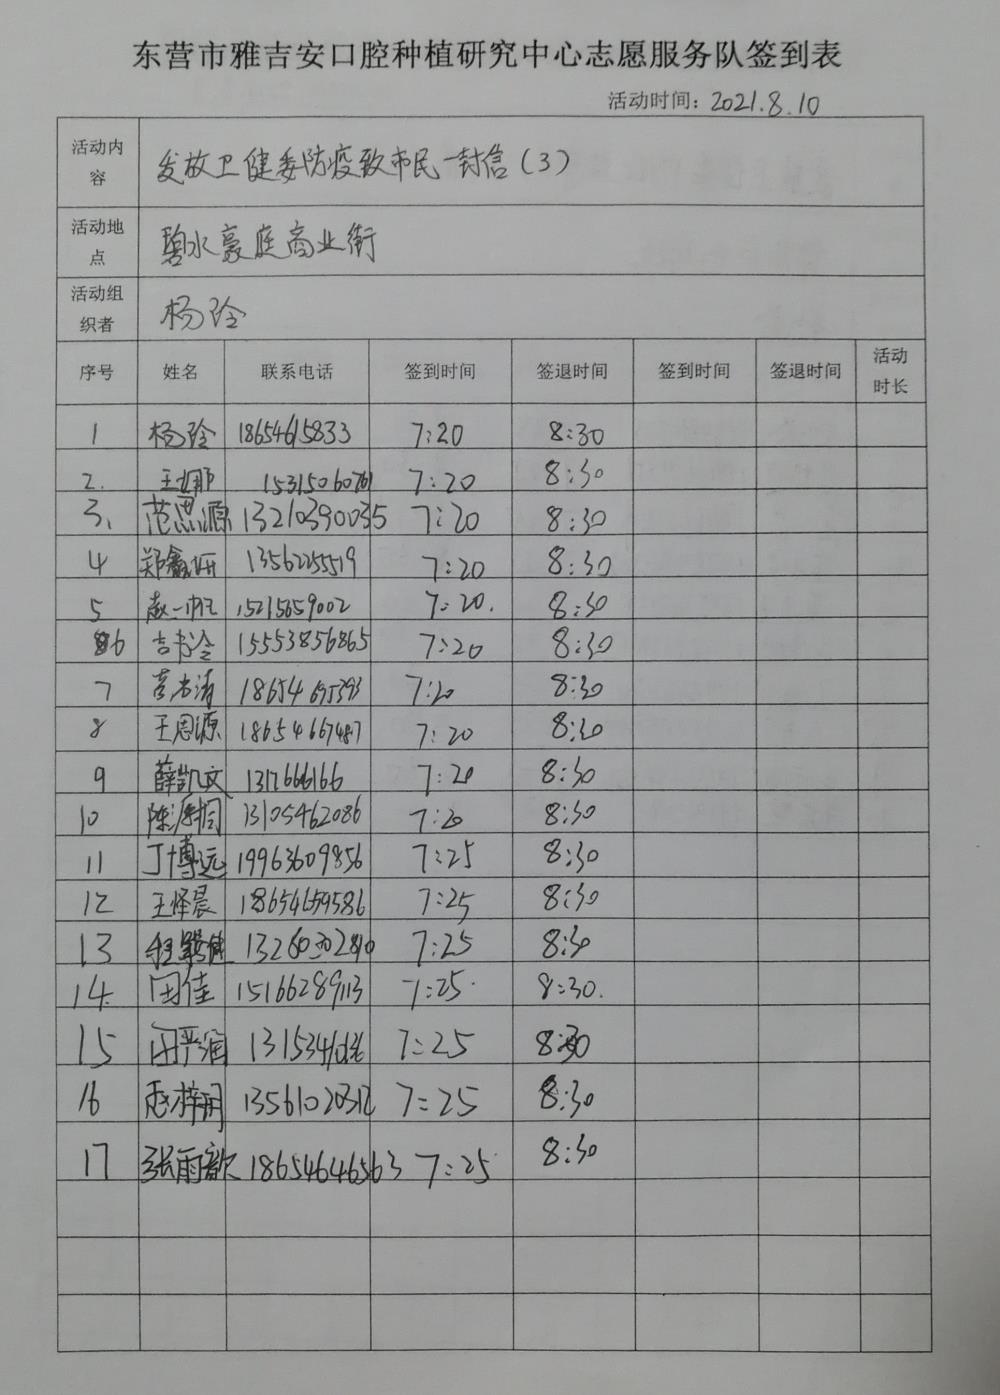 东营市雅吉安口腔种植研究中心志愿服务队签到表
活动时间：2021.8.10
活动内容 发放卫健委防疫致市民一封信（3）
活动地点 碧水豪庭商业街
活动组织者 杨玲
序号 姓名 联系电话 签到时间 签退时间 签到时间 签退时间 活动时长
1 杨玲 18654615833 7:20 8:30
2. 王娜 15315060761 7:20 8:30
3、 范思源 13210390035 7:20 8:30
4 13562255519 7:20 8:30
5 赵一帆 15215659002 7:20. 8:30
6 15553856865 7:20 8:30
7 18654695393 7:20 8:30
8 王思源 18654667487 7:20 8:30
9 薛凯文 1317666166 7:20 8:30
10 陈源桐 13105462086 7:20 8:30
11 丁博远 19963609856 7:25 8:30
12 王怿晨 18654659586 7:25 8:30
13 7:25 8:30
14. 田佳 15166289113 7:25. 8:30.
15 田严润 7:25 8:30
16 赵梓玥 7:25 8:30
17 张雨歆 18654646563 7:25 8:30